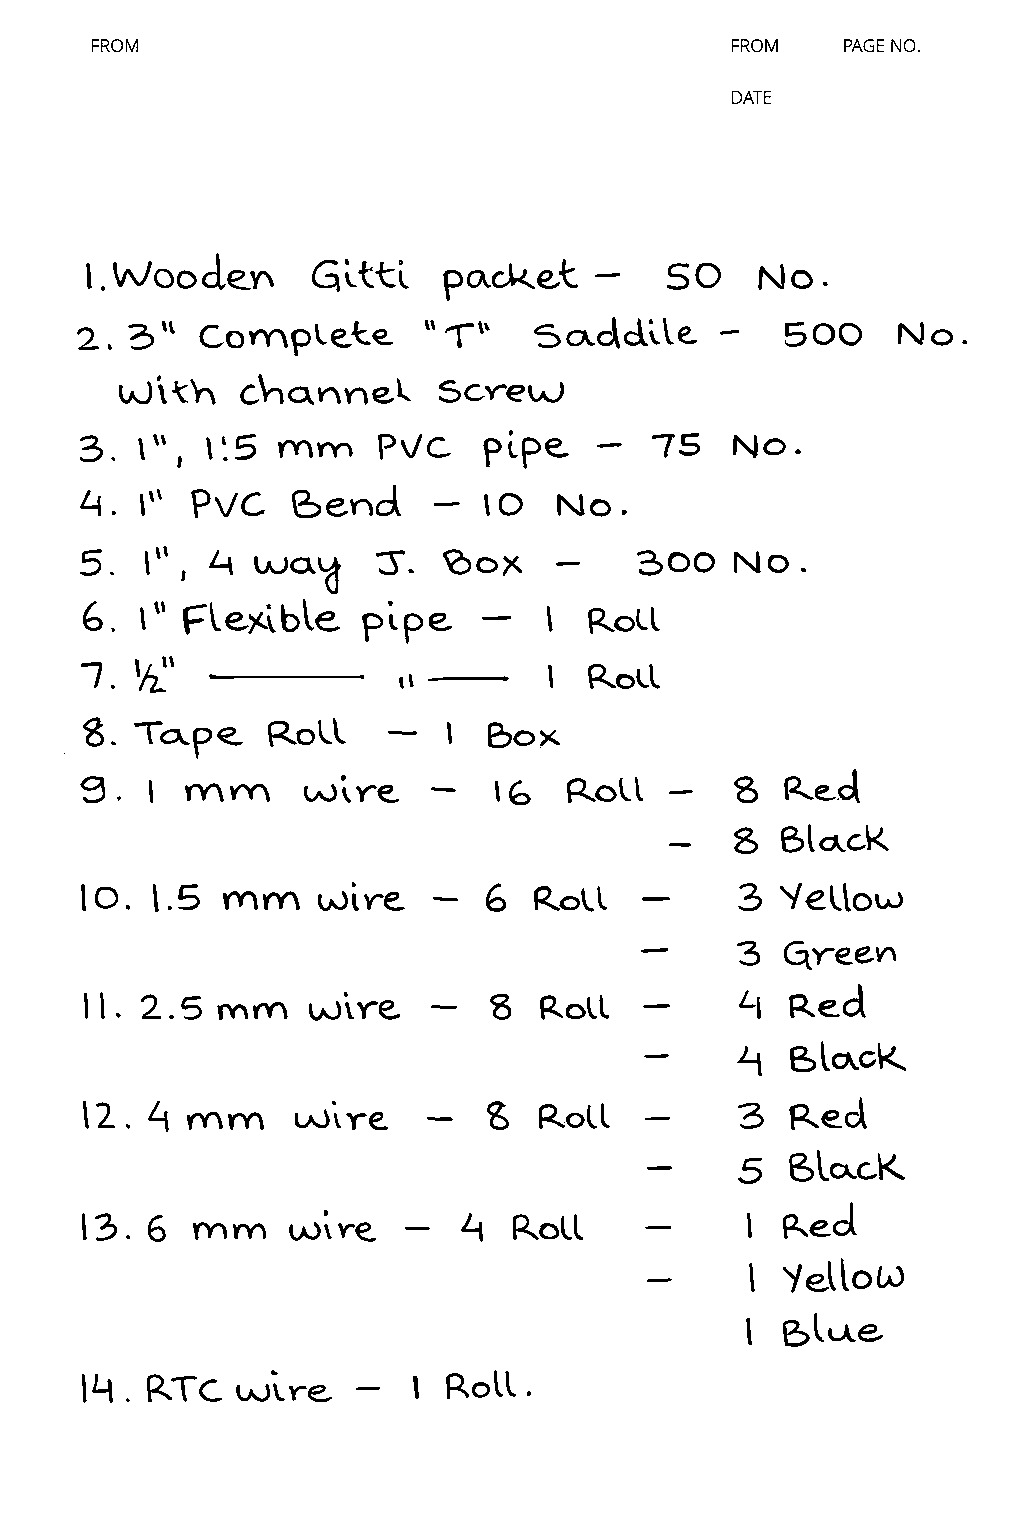 FROM FROM PAGE NO.
DATE
1. Wooden Gitti packet - 50 No.
2. 3" Complete "T" Saddile - 500 No.
with channel screw
3. 1", 1.5 mm PVC pipe - 75 No.
4. 1" PVC Bend - 10 No.
5. 1", 4 way J. Box - 300 No.
6. 1" Flexible pipe - 1 Roll
7. ½" — " — 1 Roll
8. Tape Roll - 1 Box
9. 1 mm wire - 16 Roll - 8 Red
- 8 Black
10. 1.5 mm wire - 6 Roll - 3 Yellow
- 3 Green
11. 2.5 mm wire - 8 Roll - 4 Red
- 4 Black
12. 4 mm wire - 8 Roll - 3 Red
- 5 Black
13. 6 mm wire - 4 Roll - 1 Red
- 1 Yellow
1 Blue
14. RTC wire - 1 Roll.